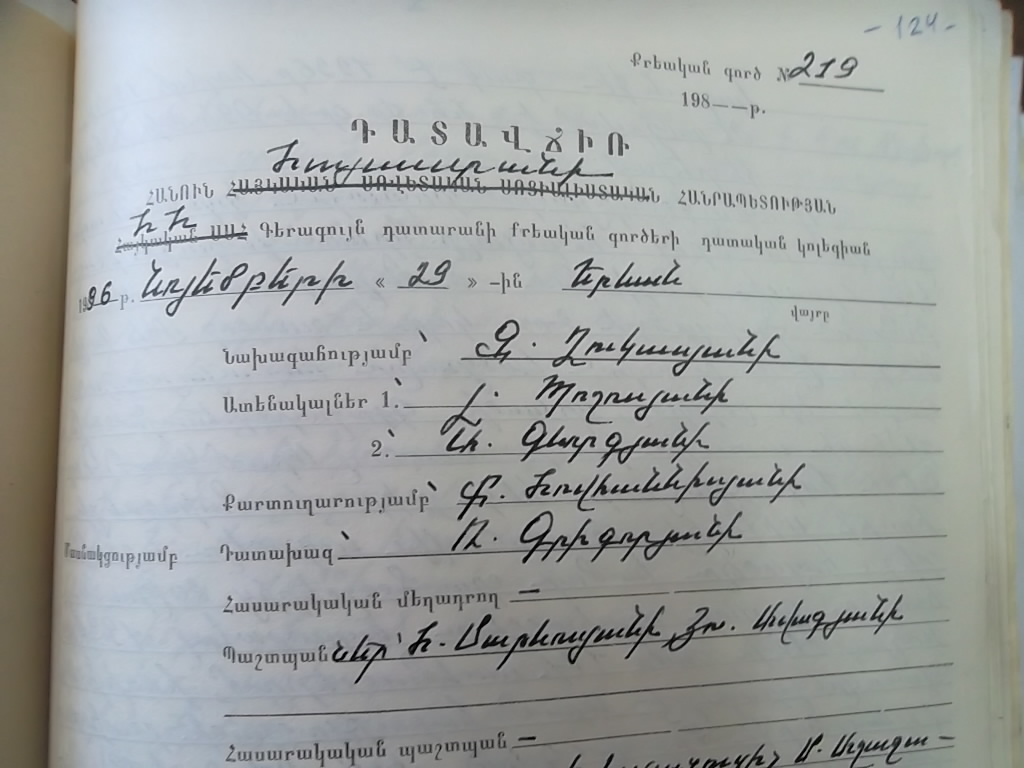 - 124 -
Քրեական գործ № 219
198——թ.
ԴԱՏԱՎՃԻՌ
Հայաստանի
ՀԱՆՈՒՆ ՀԱՅԿԱԿԱՆ ՍՈՎԵՏԱԿԱՆ ՍՈՑԻԱԼԻՍՏԱԿԱՆ ՀԱՆՐԱՊԵՏՈՒԹՅԱՆ
ՀՀ
Հայկական ՍՍՀ Գերագույն դատարանի քրեական գործերի դատական կոլեգիան
1996 թ. նոյեմբերի « 29 » -ին Երևան
վայրը
Նախագահությամբ՝ Գ. Ղուկասյանի
Ատենակալներ 1.՝ Լ. Պողոսյանի
2.՝ Գևորգյանի
Քարտուղարությամբ՝ Հովհաննիսյանի
Մասնակցությամբ Դատախազ՝ Ռ. Գրիգորյանի
Հասարակական մեղադրող —
Պաշտպաններ՝ Հ.
Հասարակական պաշտպան —